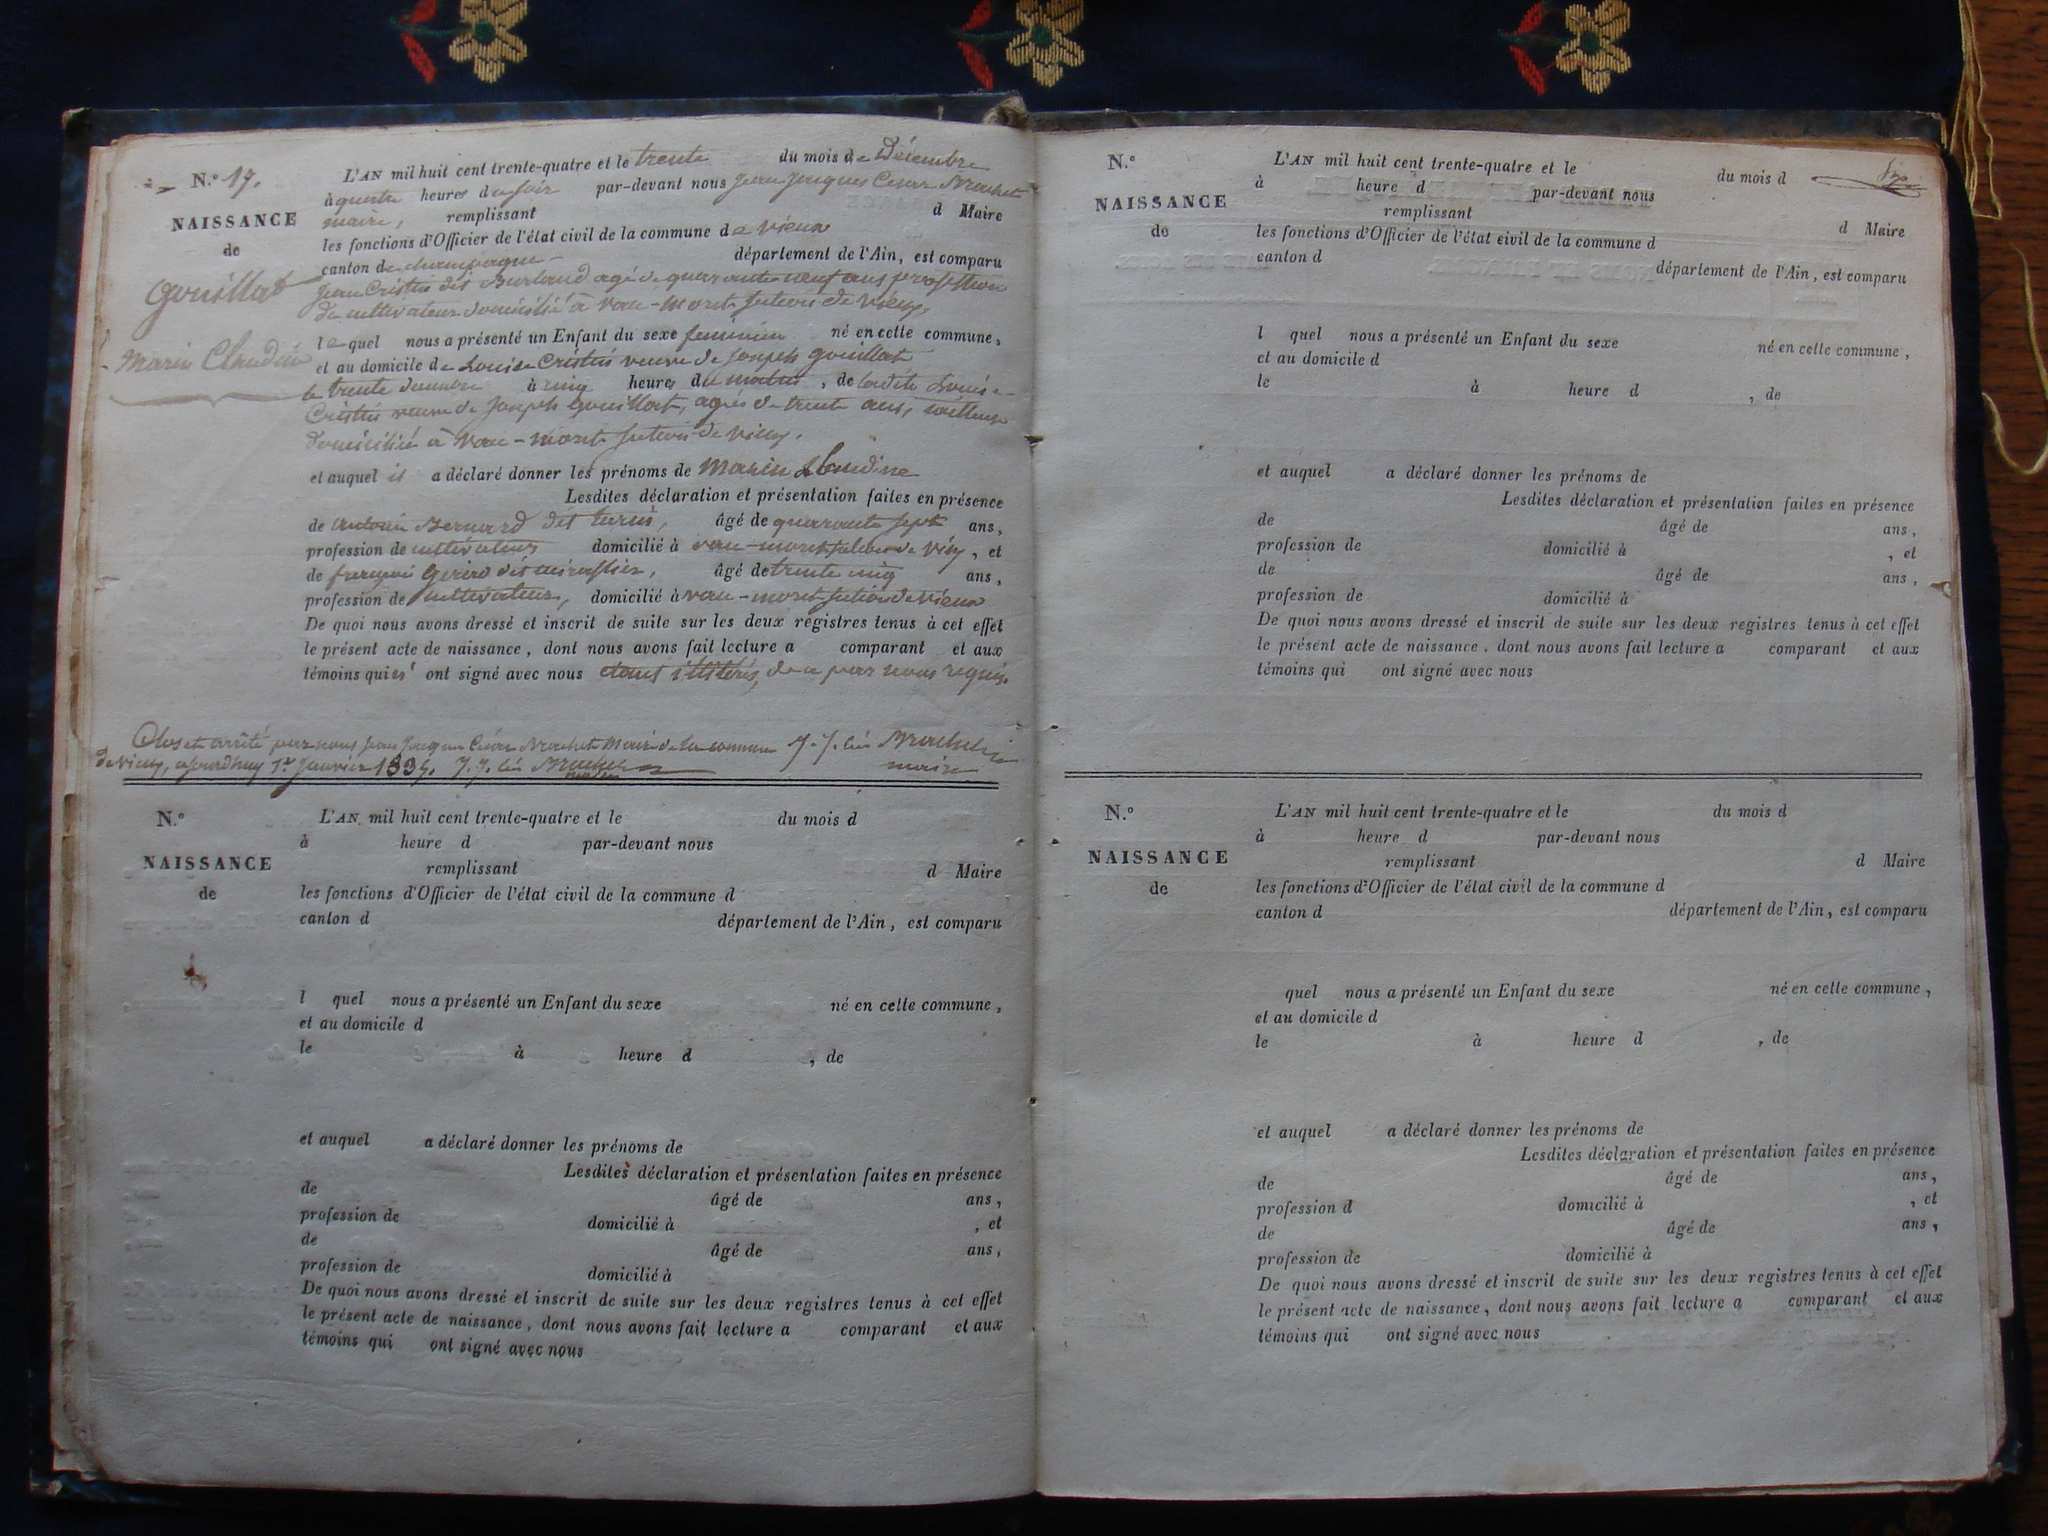 N.º 17.
NAISSANCE
de
Gouillat
Marie Claudine
L'AN mil huit cent trente-quatre et le trente du mois de Décembre
à quatre heures du soir par-devant nous Jean Jacques César Brachet
maire, remplissant d Maire
les fonctions d'Officier de l'état civil de la commune de vieux
canton de champagne département de l'Ain, est comparu
Jean Cristin dit Burland agé de quarante neuf ans profession
de cultivateur domicilié à vau-mont section de vieux,
lequel nous a présenté un Enfant du sexe feminin né en cette commune,
et au domicile de Louise Cristin veuve de Joseph gouillat
le trente decembre à cinq heures du matin, de ladite Louise
Cristin veuve de Joseph gouillat, agée de trente ans,
domiciliée à vau-mont section de vieux.
et auquel il a déclaré donner les prénoms de Marie Claudine
Lesdites déclaration et présentation faites en présence
de antoine Bernard dit âgé de quarante sept ans,
profession de cultivateur domicilié à vau-mont section de vieux, et
de françois dit âgé de trente cinq ans,
profession de cultivateur, domicilié à vau-mont section de vieux
De quoi nous avons dressé et inscrit de suite sur les deux registres tenus à cet effet
le présent acte de naissance, dont nous avons fait lecture a comparant et aux
témoins qui n' ont signé avec nous étant illitérés, de ce par nous requis.
Clos et arrêté par nous Jean Jacques César Brachet Maire de la commune
de vieux, aujourdhuy 1er Janvier 1835. J. J. Cés Brachet
maire
J. J. Cés Brachet
maire
N.º
NAISSANCE
de
L'AN mil huit cent trente-quatre et le du mois d
à heure d par-devant nous
remplissant d Maire
les fonctions d'Officier de l'état civil de la commune d
canton d département de l'Ain, est comparu
l quel nous a présenté un Enfant du sexe né en cette commune,
et au domicile d
le à heure d , de
et auquel a déclaré donner les prénoms de
Lesdites déclaration et présentation faites en présence
de âgé de ans,
profession de domicilié à , et
de âgé de ans,
profession de domicilié à
De quoi nous avons dressé et inscrit de suite sur les deux registres tenus à cet effet
le présent acte de naissance, dont nous avons fait lecture a comparant et aux
témoins qui ont signé avec nous
N.º
NAISSANCE
de
L'AN mil huit cent trente-quatre et le du mois d
à heure d par-devant nous
remplissant d Maire
les fonctions d'Officier de l'état civil de la commune d
canton d département de l'Ain, est comparu
l quel nous a présenté un Enfant du sexe né en cette commune,
et au domicile d
le à heure d , de
et auquel a déclaré donner les prénoms de
Lesdites déclaration et présentation faites en présence
de âgé de ans,
profession de domicilié à , et
de âgé de ans,
profession de domicilié à
De quoi nous avons dressé et inscrit de suite sur les deux registres tenus à cet effet
le présent acte de naissance, dont nous avons fait lecture a comparant et aux
témoins qui ont signé avec nous
N.º
NAISSANCE
de
L'AN mil huit cent trente-quatre et le du mois d
à heure d par-devant nous
remplissant d Maire
les fonctions d'Officier de l'état civil de la commune d
canton d département de l'Ain, est comparu
quel nous a présenté un Enfant du sexe né en cette commune,
et au domicile d
le à heure d , de
et auquel a déclaré donner les prénoms de
Lesdites déclaration et présentation faites en présence
de âgé de ans,
profession d domicilié à , et
de âgé de ans,
profession de domicilié à
De quoi nous avons dressé et inscrit de suite sur les deux registres tenus à cet effet
le présent acte de naissance, dont nous avons fait lecture a comparant et aux
témoins qui ont signé avec nous